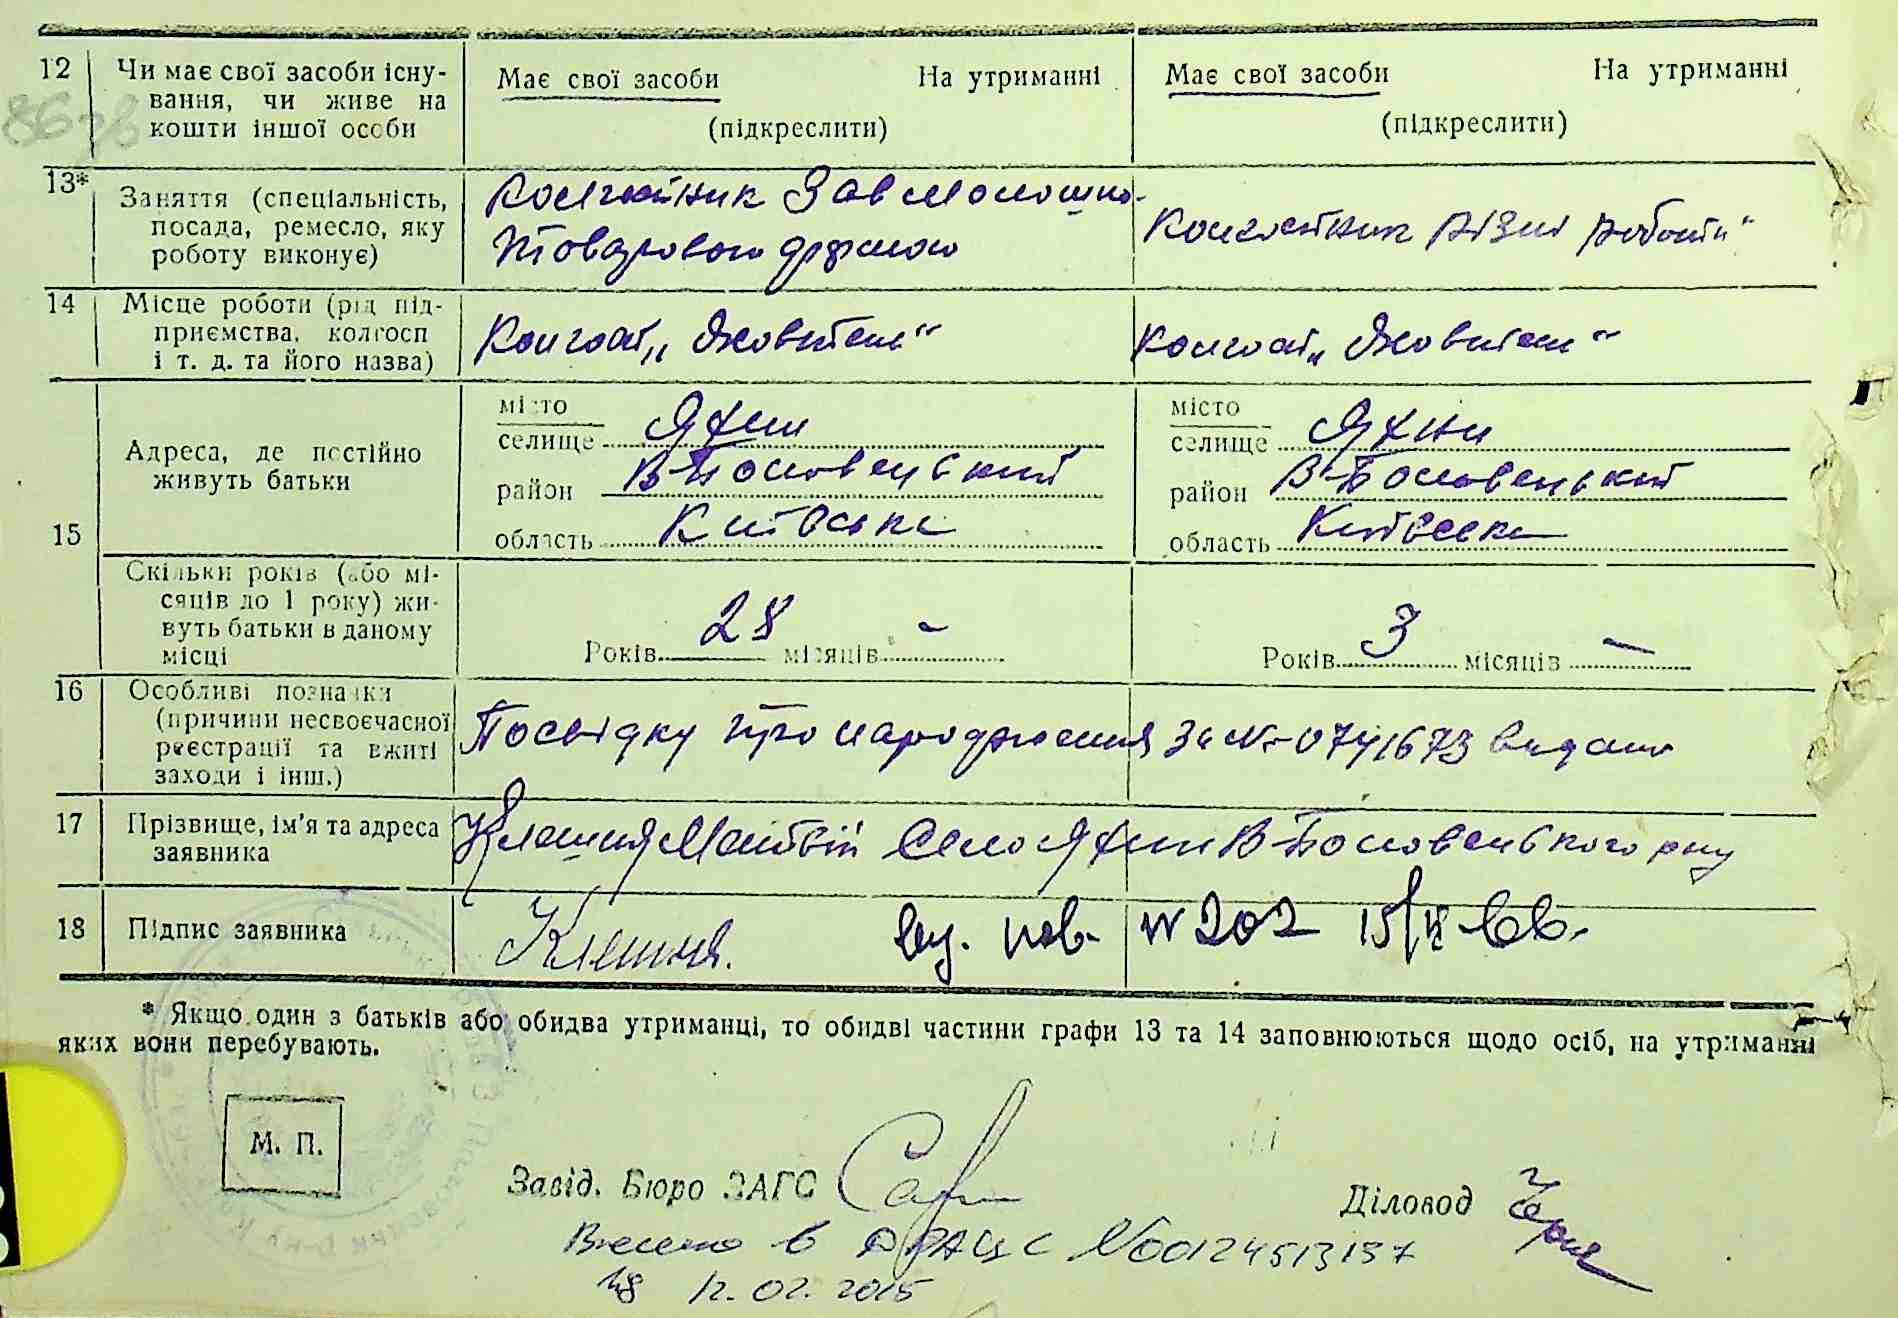 12 Чи має свої засоби існу-
вання, чи живе на
кошти іншої особи
Має свої засоби На утриманні
(підкреслити)
Має свої засоби На утриманні
(підкреслити)
13* Заняття (спеціальність,
посада, ремесло, яку
роботу виконує)
Колгоспник Зав молошно-
товаровою фермою
Колгоспник Різні роботи"
14 Місце роботи (рід під-
приємства, колгосп
і т. д. та його назва)
Колгосп „Жовтень"
Колгосп „Жовтень"
15 Адреса, де постійно
живуть батьки
місто
селище Яхни
район В-Половецький
область Київська
місто
селище Яхни
район В-Половецький
область Київська
Скільки років (або мі-
сяців до 1 року) жи-
вуть батьки в даному
місці
Років 28 місяців –
Років 3 місяців –
16 Особливі позначки
(причини несвоєчасної
реєстрації та вжиті
заходи і інш.)
Посвідку про народження за № 0741673 видано
17 Прізвище, ім'я та адреса
заявника
Матвій Село Яхни В-Половецького р-ну
18 Підпис заявника
вид. пов. № 202 15/ІХ 66.
* Якщо один з батьків або обидва утриманці, то обидві частини графи 13 та 14 заповнюються щодо осіб, на утриманні
яких вони перебувають.
М. П.
Завід. Бюро ЗАГС
Діловод
Внесено в ДРАЦС №00124513137
12.02.2015